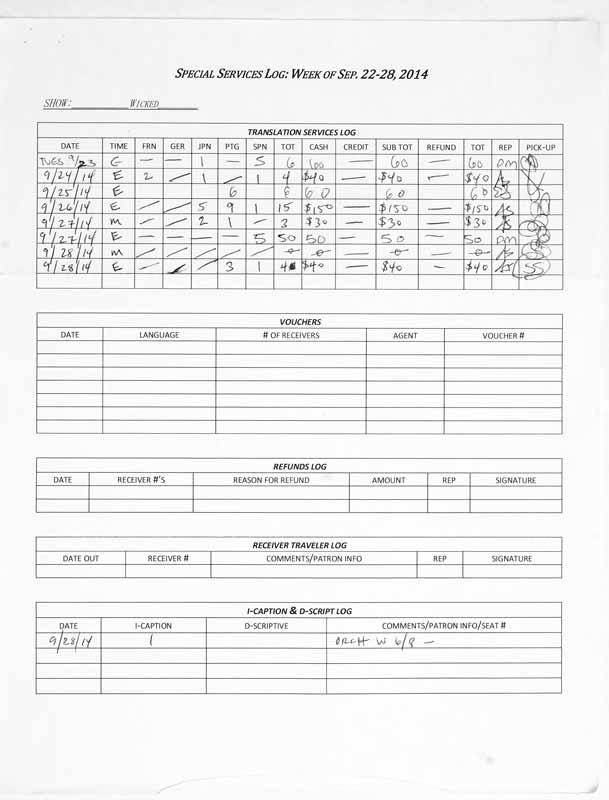 SPECIAL SERVICES LOG: WEEK OF SEP. 22-28, 2014
SHOW: WICKED
TRANSLATION SERVICES LOG
DATE TIME FRN GER JPN PTG SPN TOT CASH CREDIT SUB TOT REFUND TOT REP PICK-UP
TUES 9/23 E — — 1 — 5 6 60 — 60 — 60 DM
9/24/14 E 2 / 1 / 1 4 $40 — $40 — $40 AS
9/25/14 E 6 6 60 60 60
9/26/14 E / / 5 9 1 15 $150 — $150 — $150 AS
9/27/14 M / / 2 1 - 3 $30 — $30 — $30 AS
9/27/14 E — — — — 5 50 50 — 50 — 50 DM
9/28/14 M / / / / / 0 0 — 0 — 0 AS
9/28/14 E / / / 3 1 4 $40 — $40 — $40 AS SS
VOUCHERS
DATE LANGUAGE # OF RECEIVERS AGENT VOUCHER #
REFUNDS LOG
DATE RECEIVER #'S REASON FOR REFUND AMOUNT REP SIGNATURE
RECEIVER TRAVELER LOG
DATE OUT RECEIVER # COMMENTS/PATRON INFO REP SIGNATURE
I-CAPTION & D-SCRIPT LOG
DATE I-CAPTION D-SCRIPTIVE COMMENTS/PATRON INFO/SEAT #
9/28/14 1 ORCH W 6/8 —